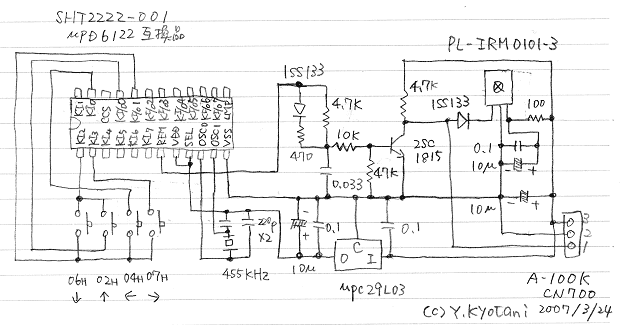 SHT2222-001
μPD6122 互換
PL-IRM0101-3
1SS133
4.7K
10K
470
47K
0.033
2SC
1815
4.7K
1SS133
100
0.1
10μ
10μ
KI1
KI0
CCS
KI/O0
KI/O1
KI/O2
KI/O3
KI/O4
KI/O5
KI/O6
KI/O7
KI2
KI3
KI4
KI5
KI6
KI7
REM
VDD
SEL
OSCO
OSCI
VSS
LMP
220p
×2
455KHz
10μ
0.1
O C I
μpc29L03
0.1
3
2
1
A-100K
CN700
06H 02H 04H 07H
↓ ↑ ← →
(C) Y.Kyotani 2007/3/24